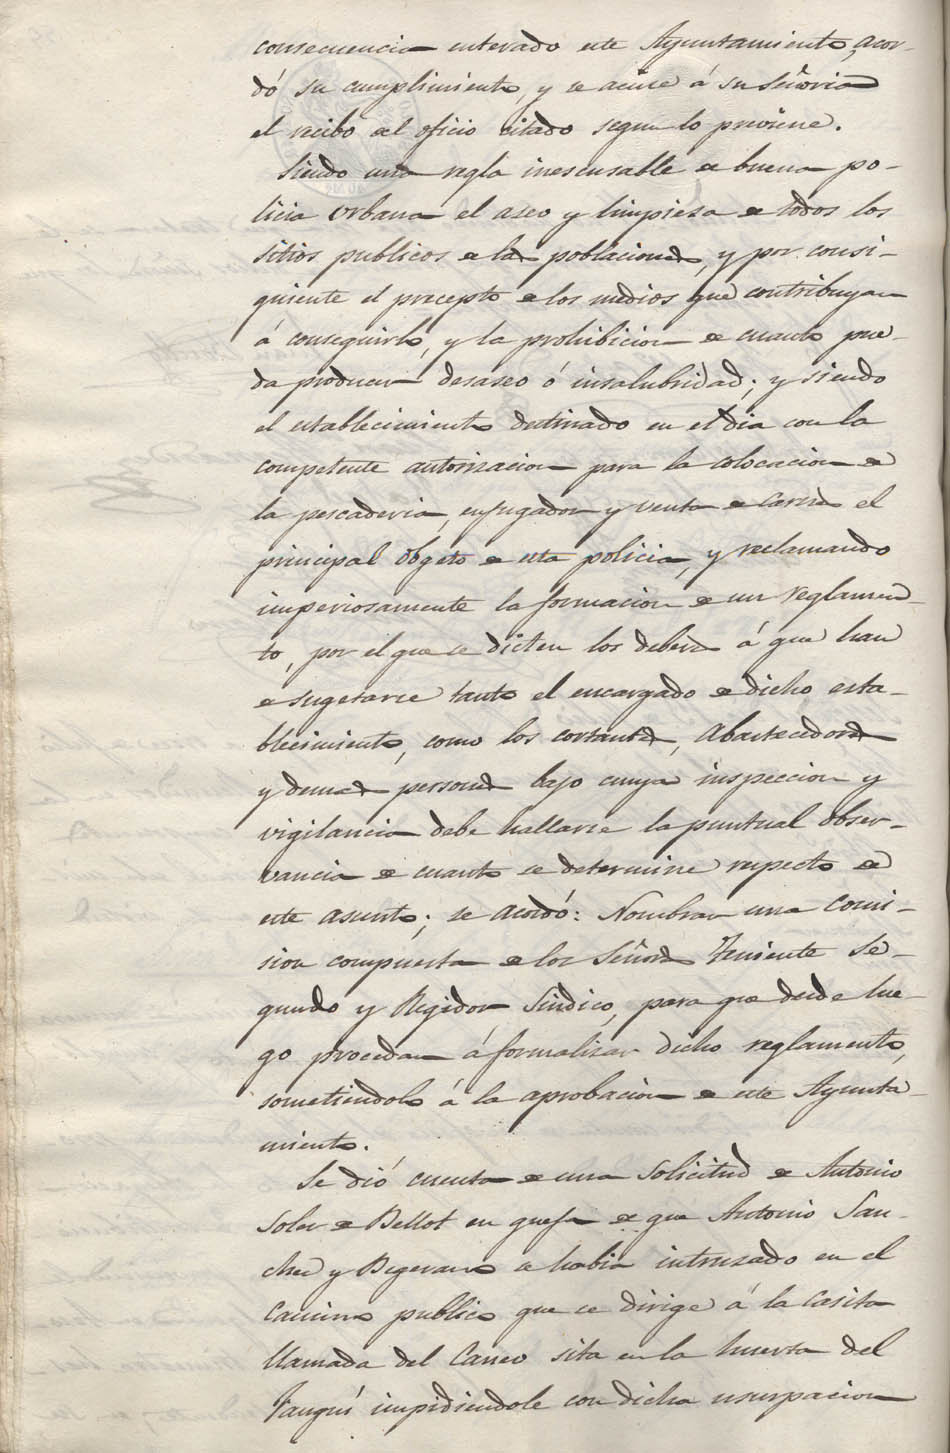 consecuencia enterado este Ayuntamiento, acor-
dó su cumplimiento, y se acuse á su Señoria
el recibo del oficio citado segun lo previene.
Siendo una regla inescusable de buena po-
licia urbana el aseo y limpieza de todos los
sitios publicos de las poblaciones, y por consi-
guiente el precepto de los medios que contribuyan
á conseguirlo, y la prohibicion de cuanto pue-
da producir desaseo ó insalubridad; y siendo
el establecimiento destinado en el dia con la
competente autorizacion para la colocacion de
la pescaderia, enjugador y venta de carnes el
principal obgeto de esta policia, y reclamando
imperiosamente la formacion de un reglamen-
to, por el que se dicten los deberes á que han
de sugetarse tanto el encargado de dicho esta-
blecimiento, como los cortantes, Abastecedores
y demas personas bajo cuya inspeccion y
vigilancia debe hallarse la puntual obser-
vancia de cuanto se determine respecto de
este asunto; se acordó: Nombrar una comi-
sion compuesta de los Señores Teniente Se-
gundo y Regidor Sindico, para que desde lue-
go procedan á formalizar dicho reglamento,
sometiendolo á la aprobacion de este Ayunta-
miento.
Se dió cuenta de una solicitud de Antonio
Soler de Bellot en queja de que Antonio San-
chez y Begerano se habia intrusado en el
camino publico que se dirige á la casita
llamada del Carreo sita en la huerta del
impidiendole con dicha usurpacion